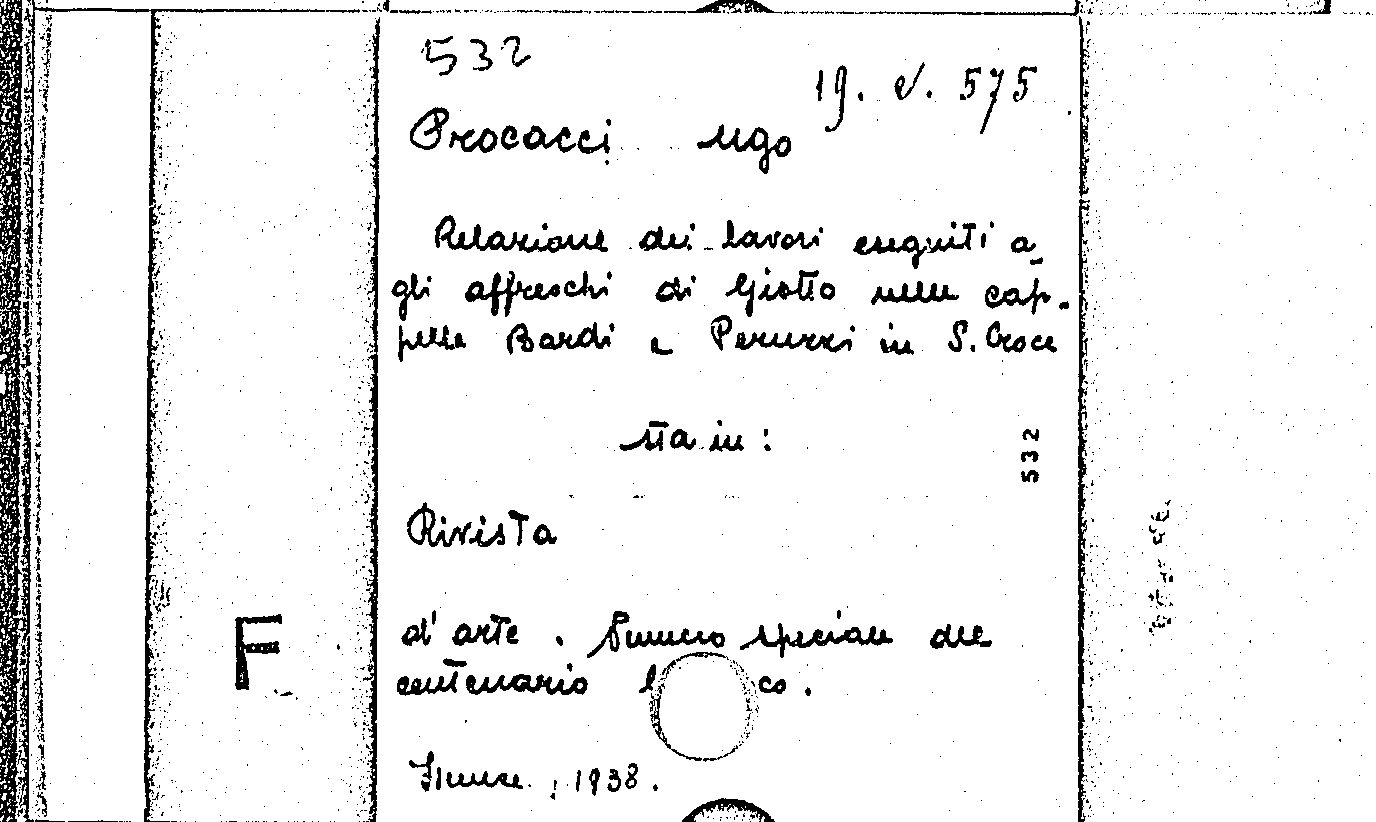 532
19. V. 575
Procacci Ugo
Relazione dei lavori eseguiti a-
gli affreschi di Giotto nelle cap-
pelle Bardi e Peruzzi in S. Croce
sta in:
532
Rivista
F
d'arte. Numero speciale del
centenario co.
Firenze, 1938.